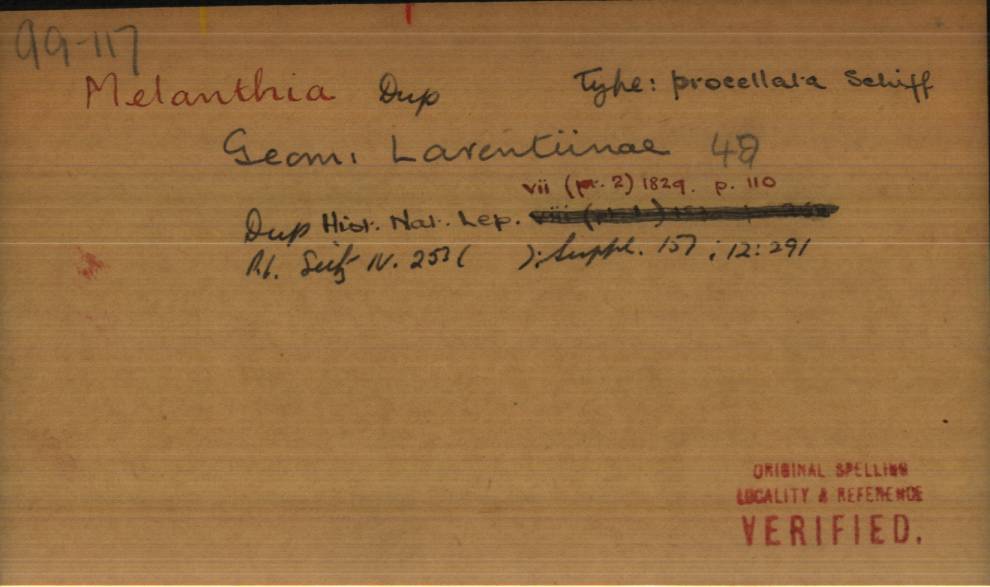 99-117
Melanthia Dup Type: procellata Schiff
Geom. Larentiinae 48
vii (pt. 2) 1829. p. 110
Dup Hist. Nat. Lep.
Pl. Seitz IV. 253 ( ); Suppl. 157; 12: 291
ORIGINAL SPELLING
LOCALITY & REFERENCE
VERIFIED.